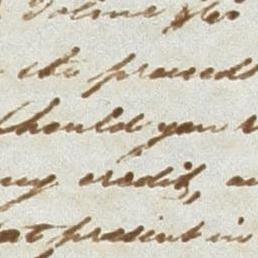 the proceeds
Should you
my credit,
at present in